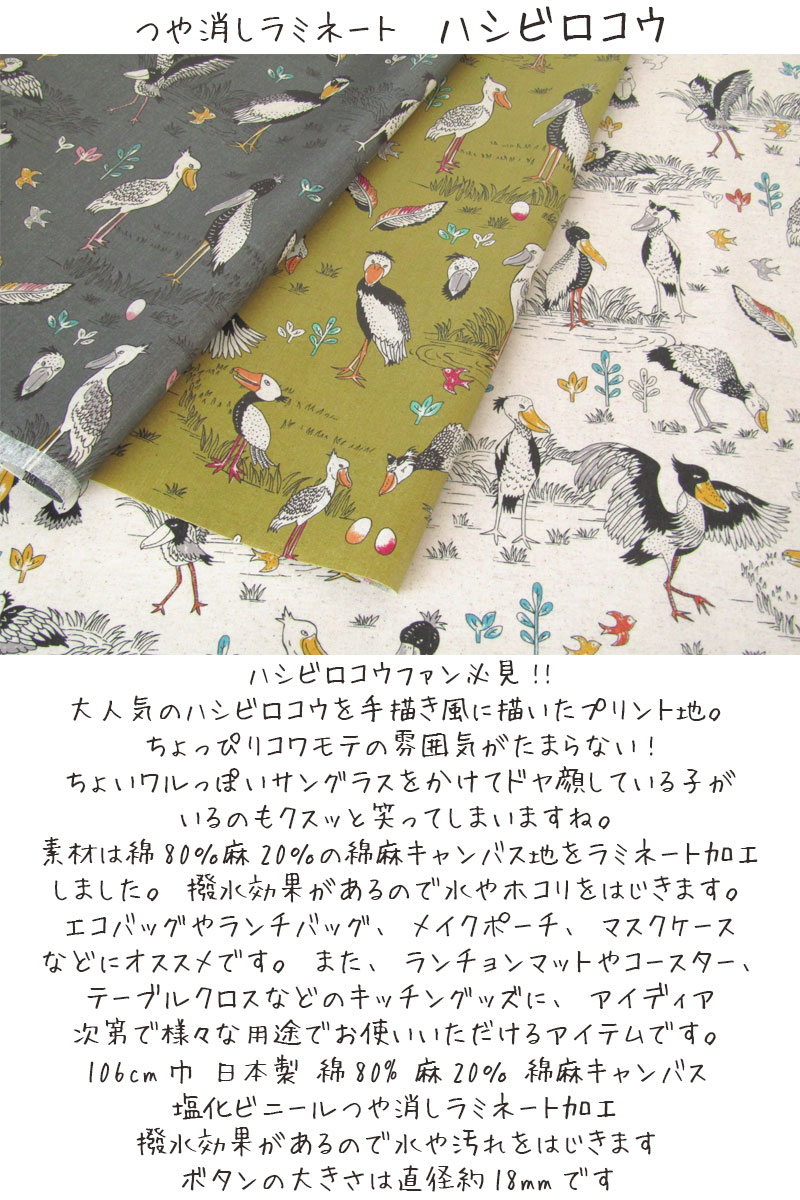 つや消しラミネート　ハシビロコウ
ハシビロコウファン必見!!
大人気のハシビロコウを手描き風に描いたプリント地。
ちょっぴりコワモテの雰囲気がたまらない!
ちょいワルっぽいサングラスをかけてドヤ顔している子が
いるのもクスッと笑ってしまいますね。
素材は綿80%麻20%の綿麻キャンバス地をラミネート加工
しました。 撥水効果があるので水やホコリをはじきます。
エコバッグやランチバッグ、 メイクポーチ、 マスクケース
などにオススメです。 また、 ランチョンマットやコースター、
テーブルクロスなどのキッチングッズに、 アイディア
次第で様々な用途でお使いいただけるアイテムです。
106cm巾 日本製 綿80% 麻20% 綿麻キャンバス
塩化ビニールつや消しラミネート加工
撥水効果があるので水や汚れをはじきます
ボタンの大きさは直径約18mmです